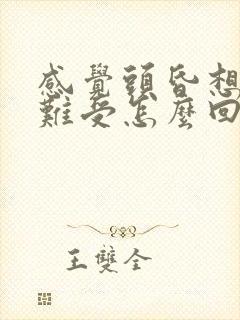 感覺頭昏想
難受怎麼回
王雙全